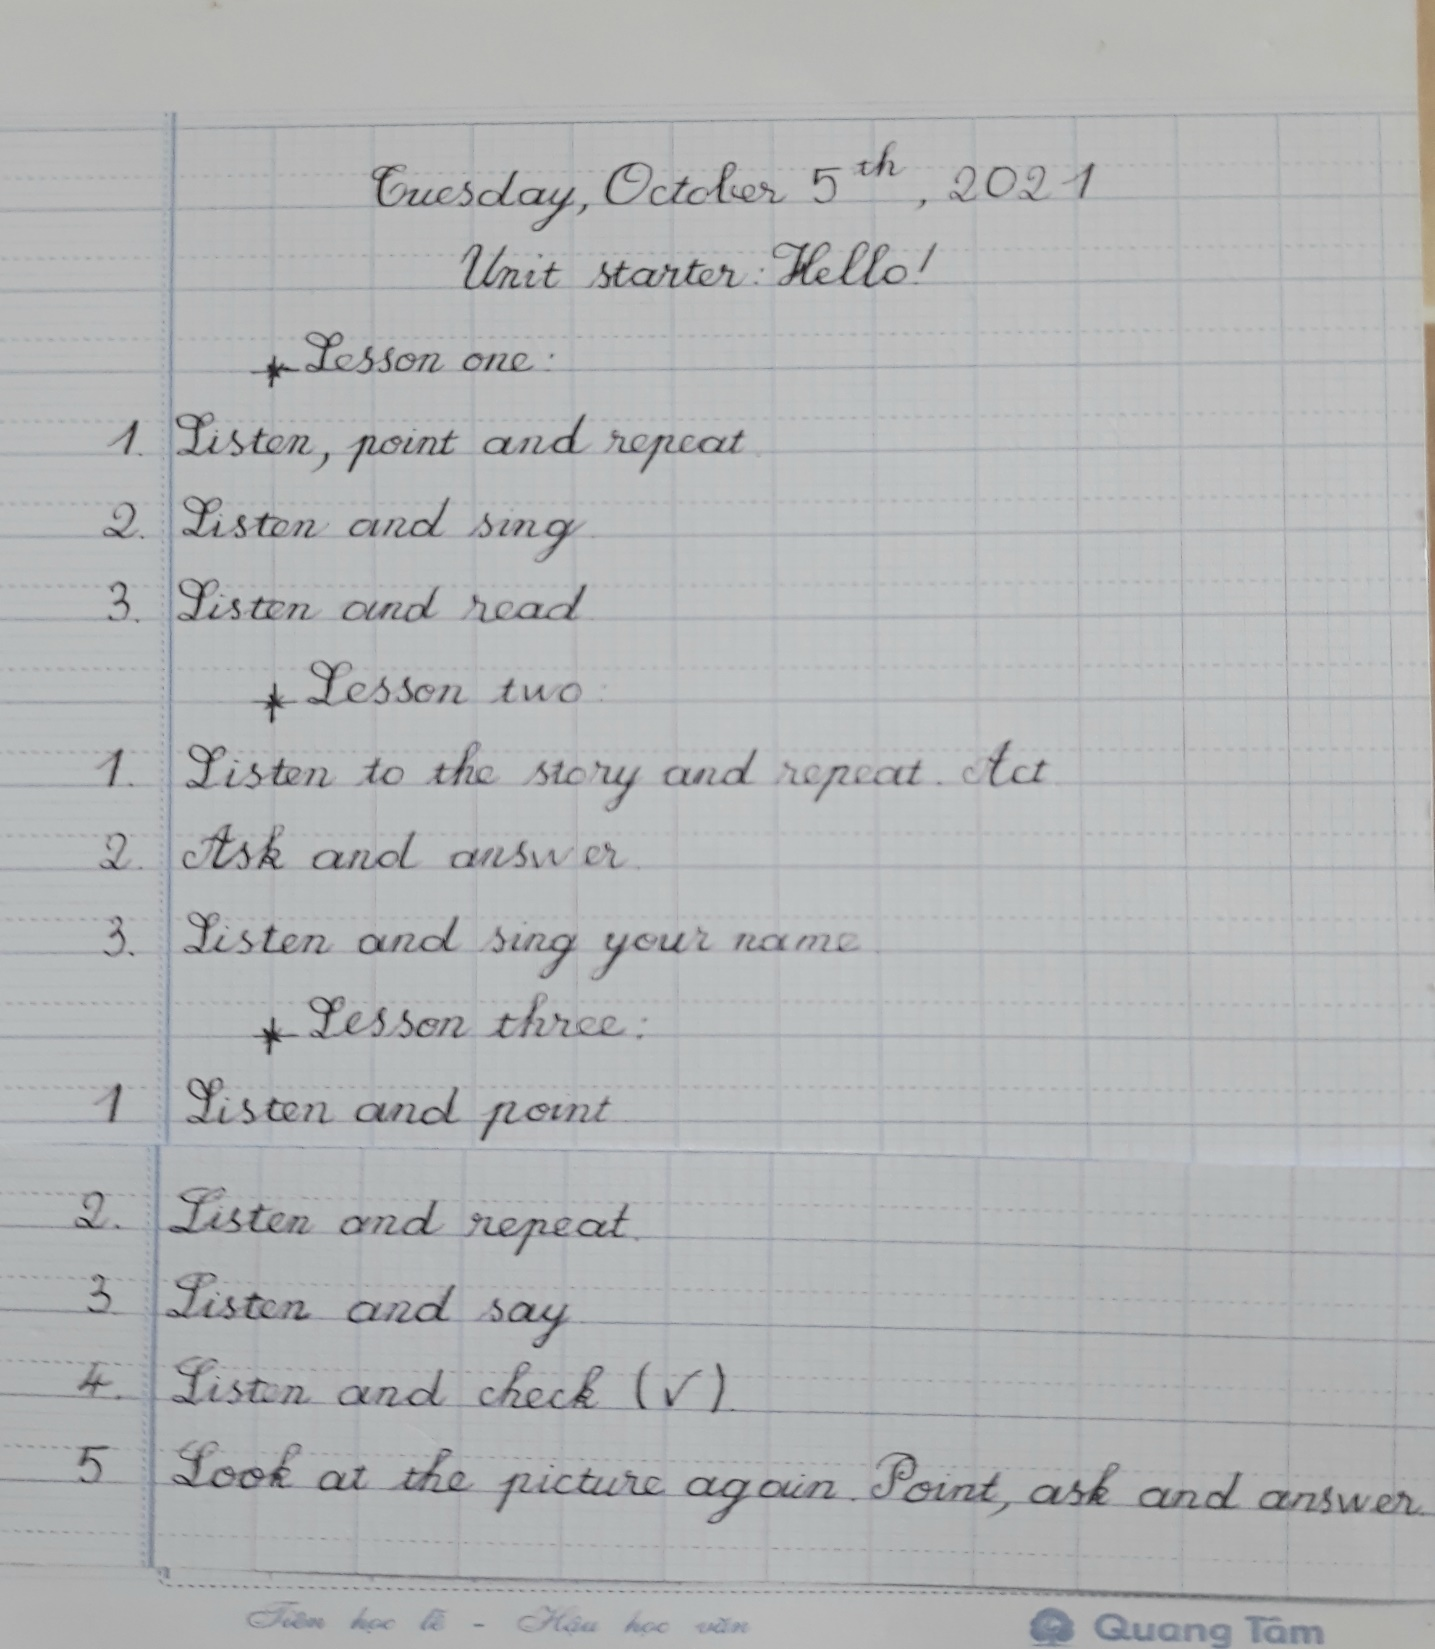 Tuesday, October 5th, 2021
Unit starter: Hello!
* Lesson one:
1. Listen, point and repeat
2. Listen and sing
3. Listen and read
* Lesson two:
1. Listen to the story and repeat. Act
2. Ask and answer
3. Listen and sing your name
* Lesson three:
1 Listen and point
2. Listen and repeat.
3 Listen and say
4. Listen and check (✓)
5 Look at the picture again. Point, ask and answer
Tiên học lễ - Hậu học văn
Quang Tâm